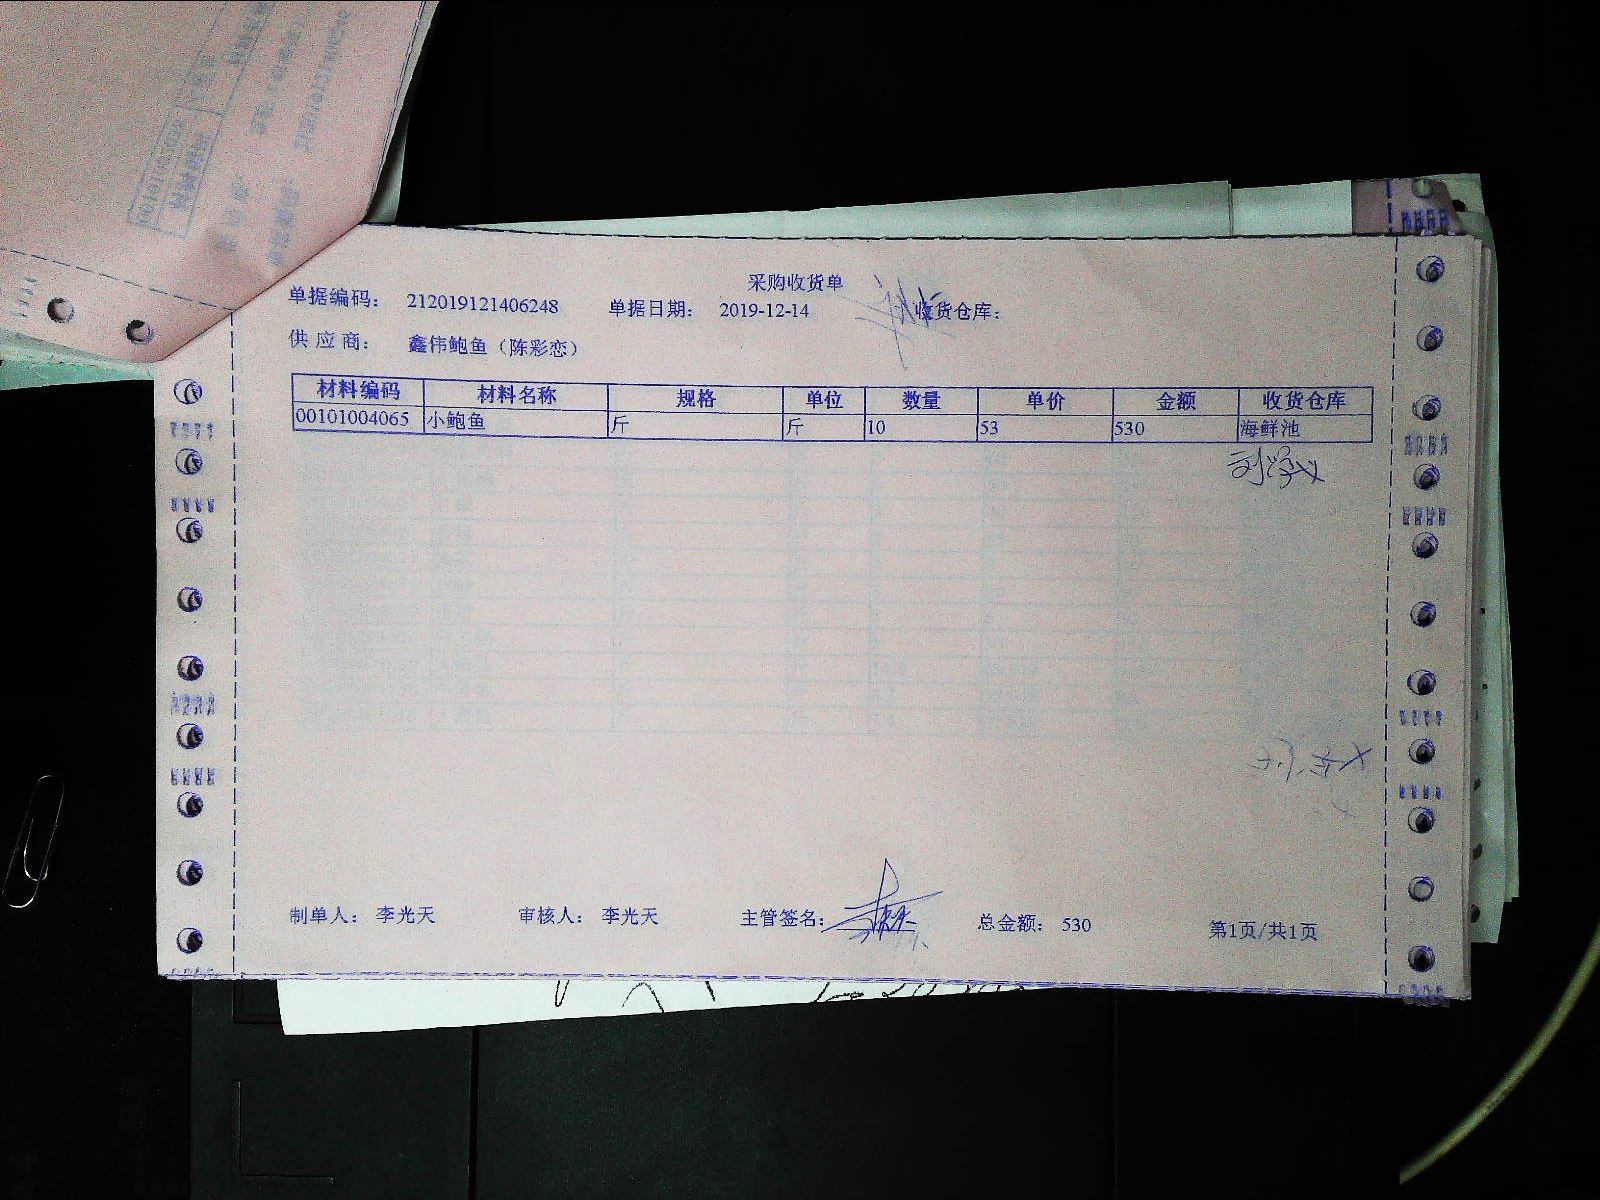 采购收货单
单据编码： 212019121406248 单据日期： 2019-12-14 收货仓库：
供 应 商： 鑫伟鲍鱼（陈彩恋）
材料编码 材料名称 规格 单位 数量 单价 金额 收货仓库
00101004065 小鲍鱼 斤 斤 10 53 530 海鲜池
制单人： 李光天 审核人： 李光天 主管签名： 总金额： 530 第1页/共1页